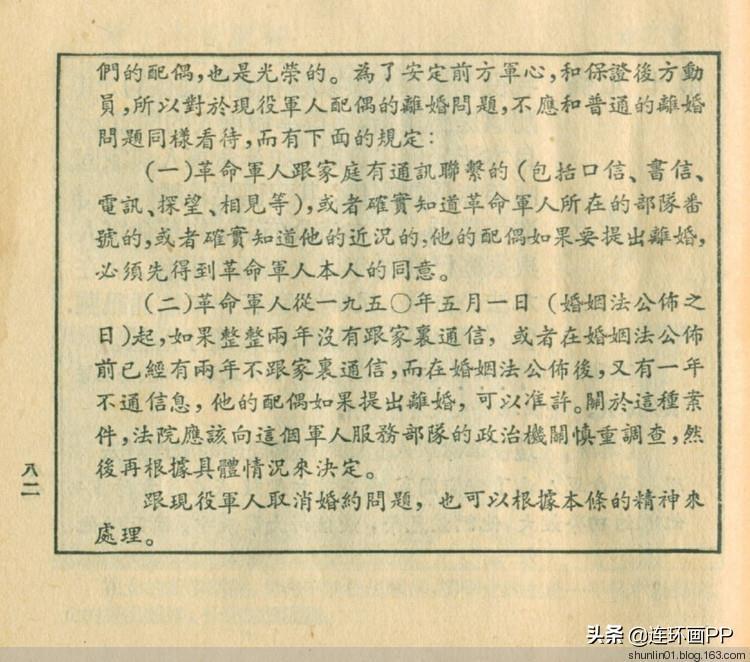 們的配偶，也是光榮的。為了安定前方軍心，和保證後方動
員，所以對於現役軍人配偶的離婚問題，不應和普通的離婚
問題同樣看待，而有下面的規定：
（一）革命軍人跟家庭有通訊聯繫的（包括口信、書信、
電訊、探望、相見等），或者確實知道革命軍人所在的部隊番
號的，或者確實知道他的近況的，他的配偶如果要提出離婚，
必須先得到革命軍人本人的同意。
（二）革命軍人從一九五〇年五月一日（婚姻法公佈之
日）起，如果整整兩年沒有跟家裏通信，或者在婚姻法公佈
前已經有兩年不跟家裏通信，而在婚姻法公佈後，又有一年
不通信息，他的配偶如果提出離婚，可以准許。關於這種案
件，法院應該向這個軍人服務部隊的政治機關慎重調查，然
後再根據具體情況來決定。
跟現役軍人取消婚約問題，也可以根據本條的精神來
處理。
八二
头条 @连环画PP
shunlin01.blog.163.com